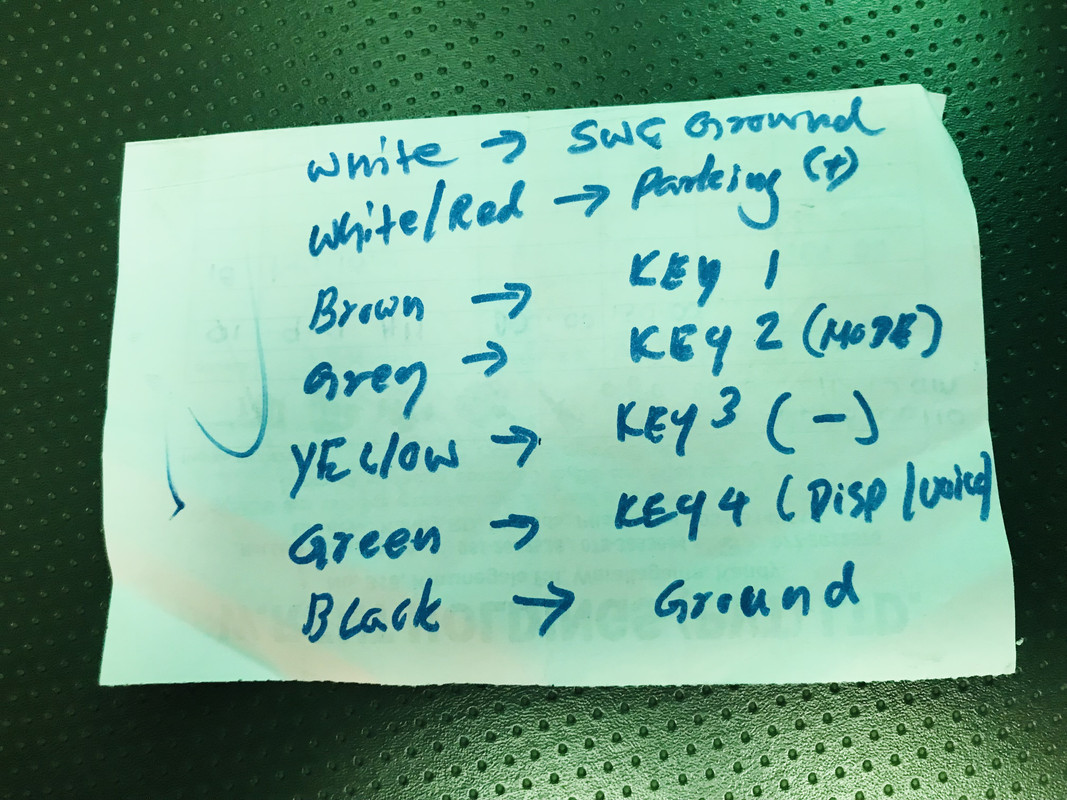 White → SWC Ground
White/Red → Parking (+)
Brown → KEY 1
Grey → KEY 2 (MODE)
YELLOW → KEY 3 (-)
Green → KEY 4 (Disp/Voice)
Black → Ground